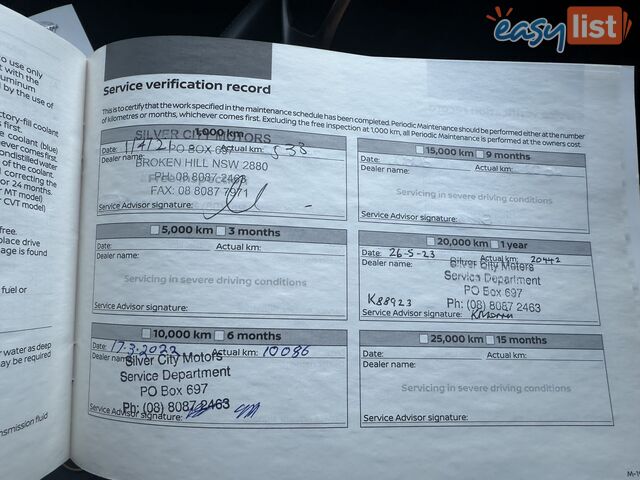 easylist
o use only
t with the
uminum
l by the use of
ctory-fill coolant
s first.
e coolant (blue)
never comes first.
ondistilled water
of the coolant.
l correcting the
or 24 months.
MT model)
CVT model)
free.
place drive
age is found
fuel or
water as deep
may be required
nsmission fluid
Service verification record
This is to certify that the work specified in the maintenance schedule has been completed. Periodic Maintenance should be performed either at the number
of kilometres or months, whichever comes first. Excluding the free inspection at 1,000 km, all Periodic Maintenance is performed at the owners cost.
1,000 km
SILVER CITY MOTORS
Date: 1/4/21 Actual km: 538
PO BOX 697
Dealer name:
BROKEN HILL NSW 2880
PH: 08 8087 2463
FAX: 08 8087 7971
Service Advisor signature:
5,000 km 3 months
Date: Actual km:
Dealer name:
Servicing in severe driving conditions
Service Advisor signature:
10,000 km 6 months
Date: 17-3-2022 Actual km: 10086
Dealer name:
Silver City Motors
Service Department
PO Box 697
Ph: (08) 8087 2463
Service Advisor signature:
15,000 km 9 months
Date: Actual km:
Dealer name:
Servicing in severe driving conditions
Service Advisor signature:
20,000 km 1 year
Date: 26-5-23 Actual km: 20442
Dealer name: Silver City Motors
Service Department
PO Box 697
K88923 Ph: (08) 8087 2463
Service Advisor signature:
25,000 km 15 months
Date: Actual km:
Dealer name:
Servicing in severe driving conditions
Service Advisor signature: